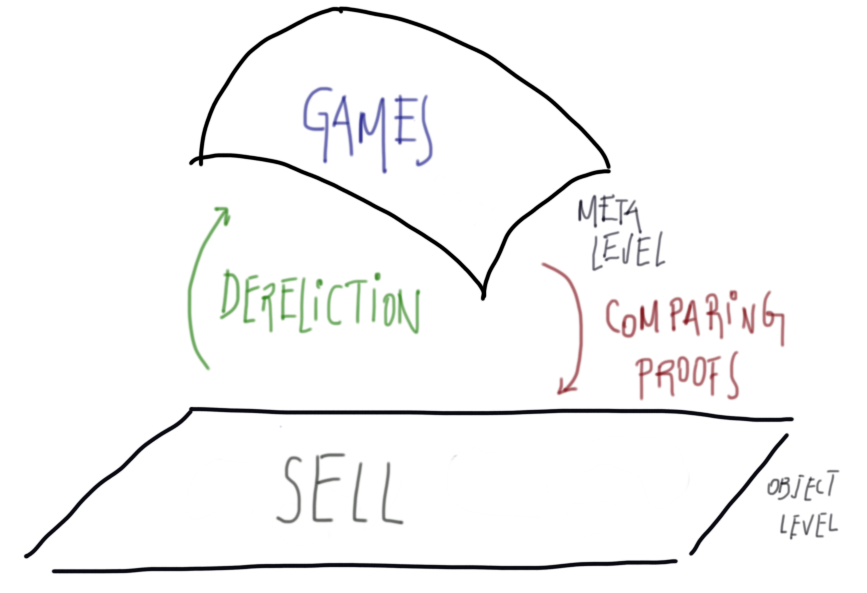 GAMES
META
LEVEL
DERELiCTiON
COMPARiNG
PROOFS
SELL
OBJECT
LEVEL